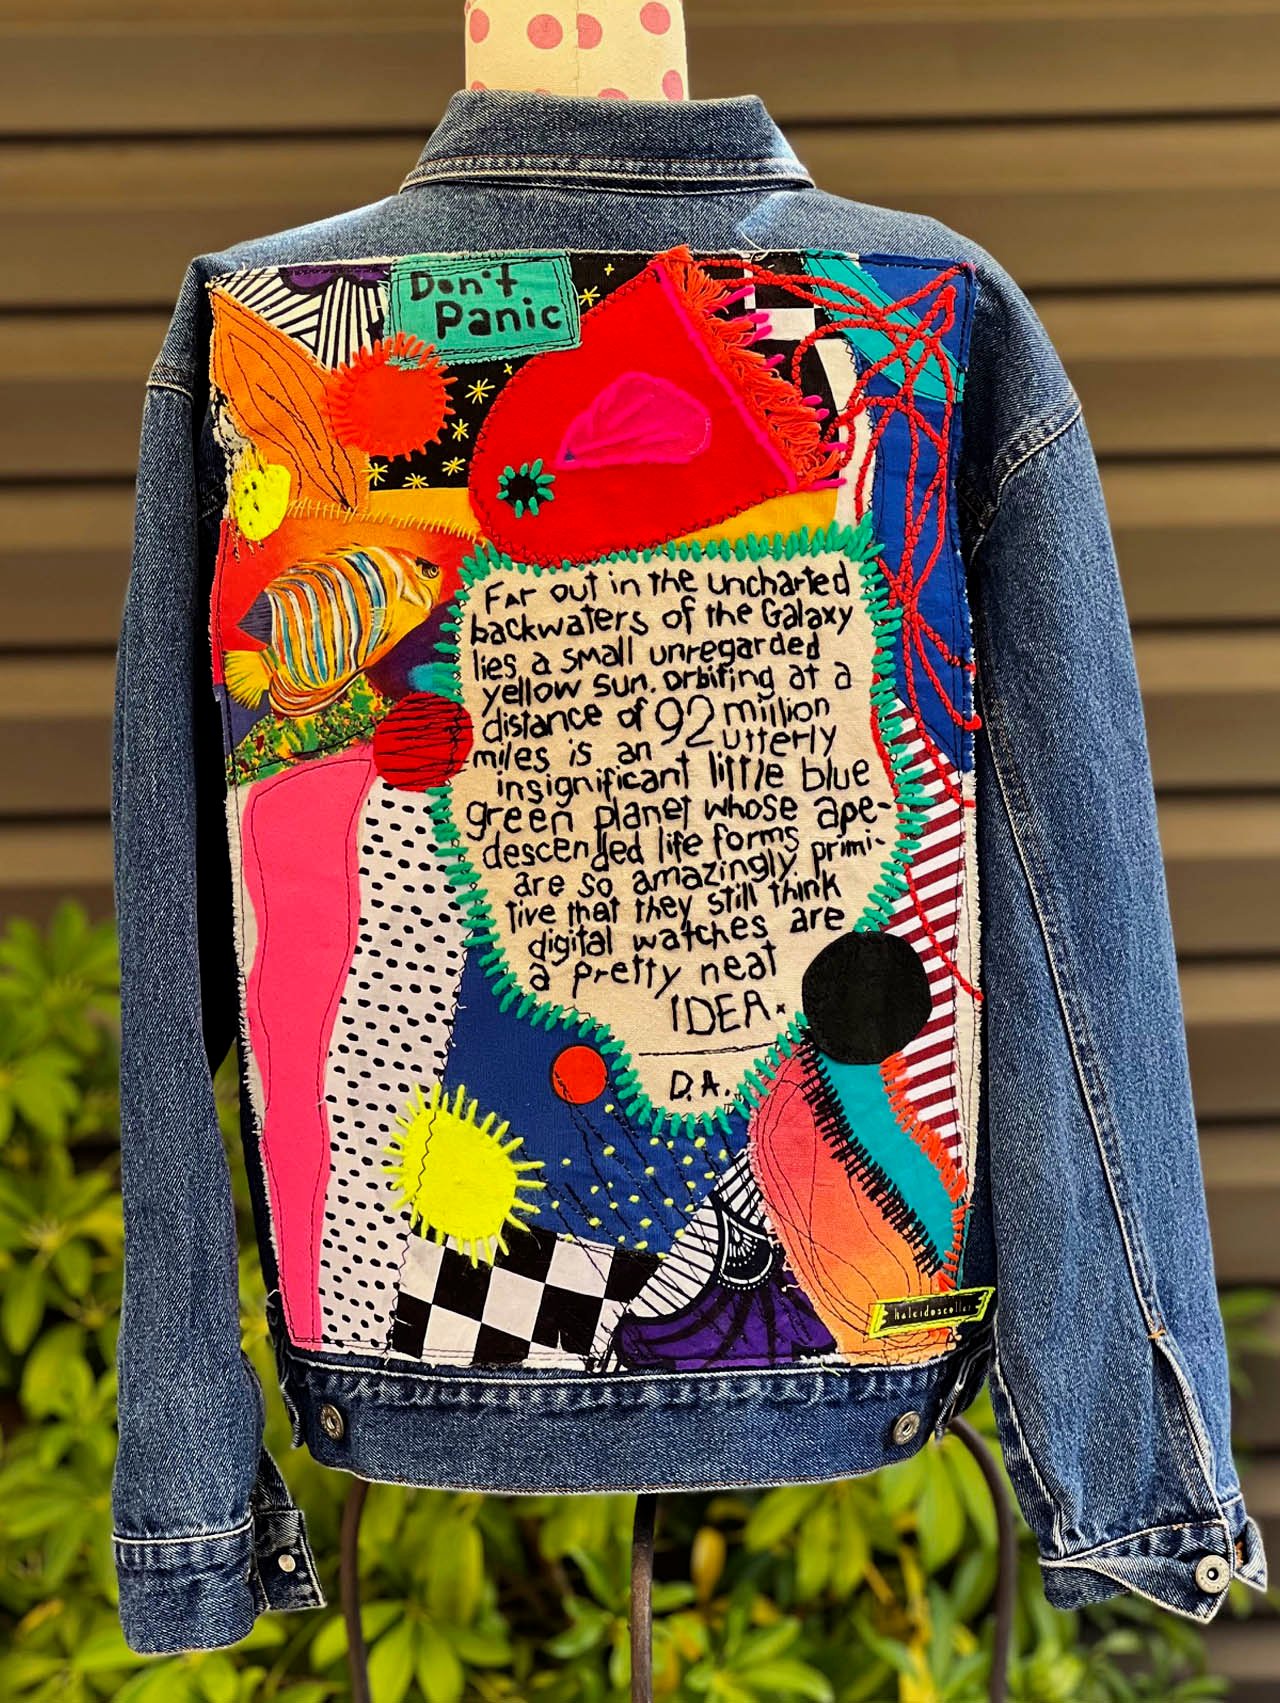 Don't
Panic
Far out in the uncharted
backwaters of the Galaxy
lies a small unregarded
yellow sun. orbiting at a
distance of 92 million
miles is an utterly
insignificant little blue
green planet whose ape-
descended life forms
are so amazingly primi-
tive that they still think
digital watches are
a pretty neat
IDEA.
D.A.